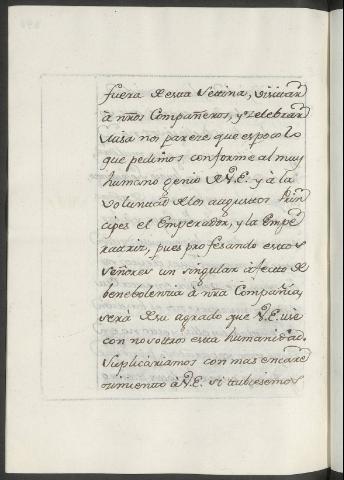 fuera de esta Settina, visitar
à nr̃os Compañeros, y celebrar
Missa nos pareze que es poco lo
que pedimos conforme al muy
humano genio de V.E. y à la
voluntad de los augustos Prin
cipes el Emperador, y la Empe
ratriz, pues profesando estos
señores un singular afecto de
benebolenzia à nr̃a Compañia,
serà de su agrado que V.E. use
con nosotros esta humanidad.
Suplicáriamos con mas encare
zimiento à V.E. si tubiesemos